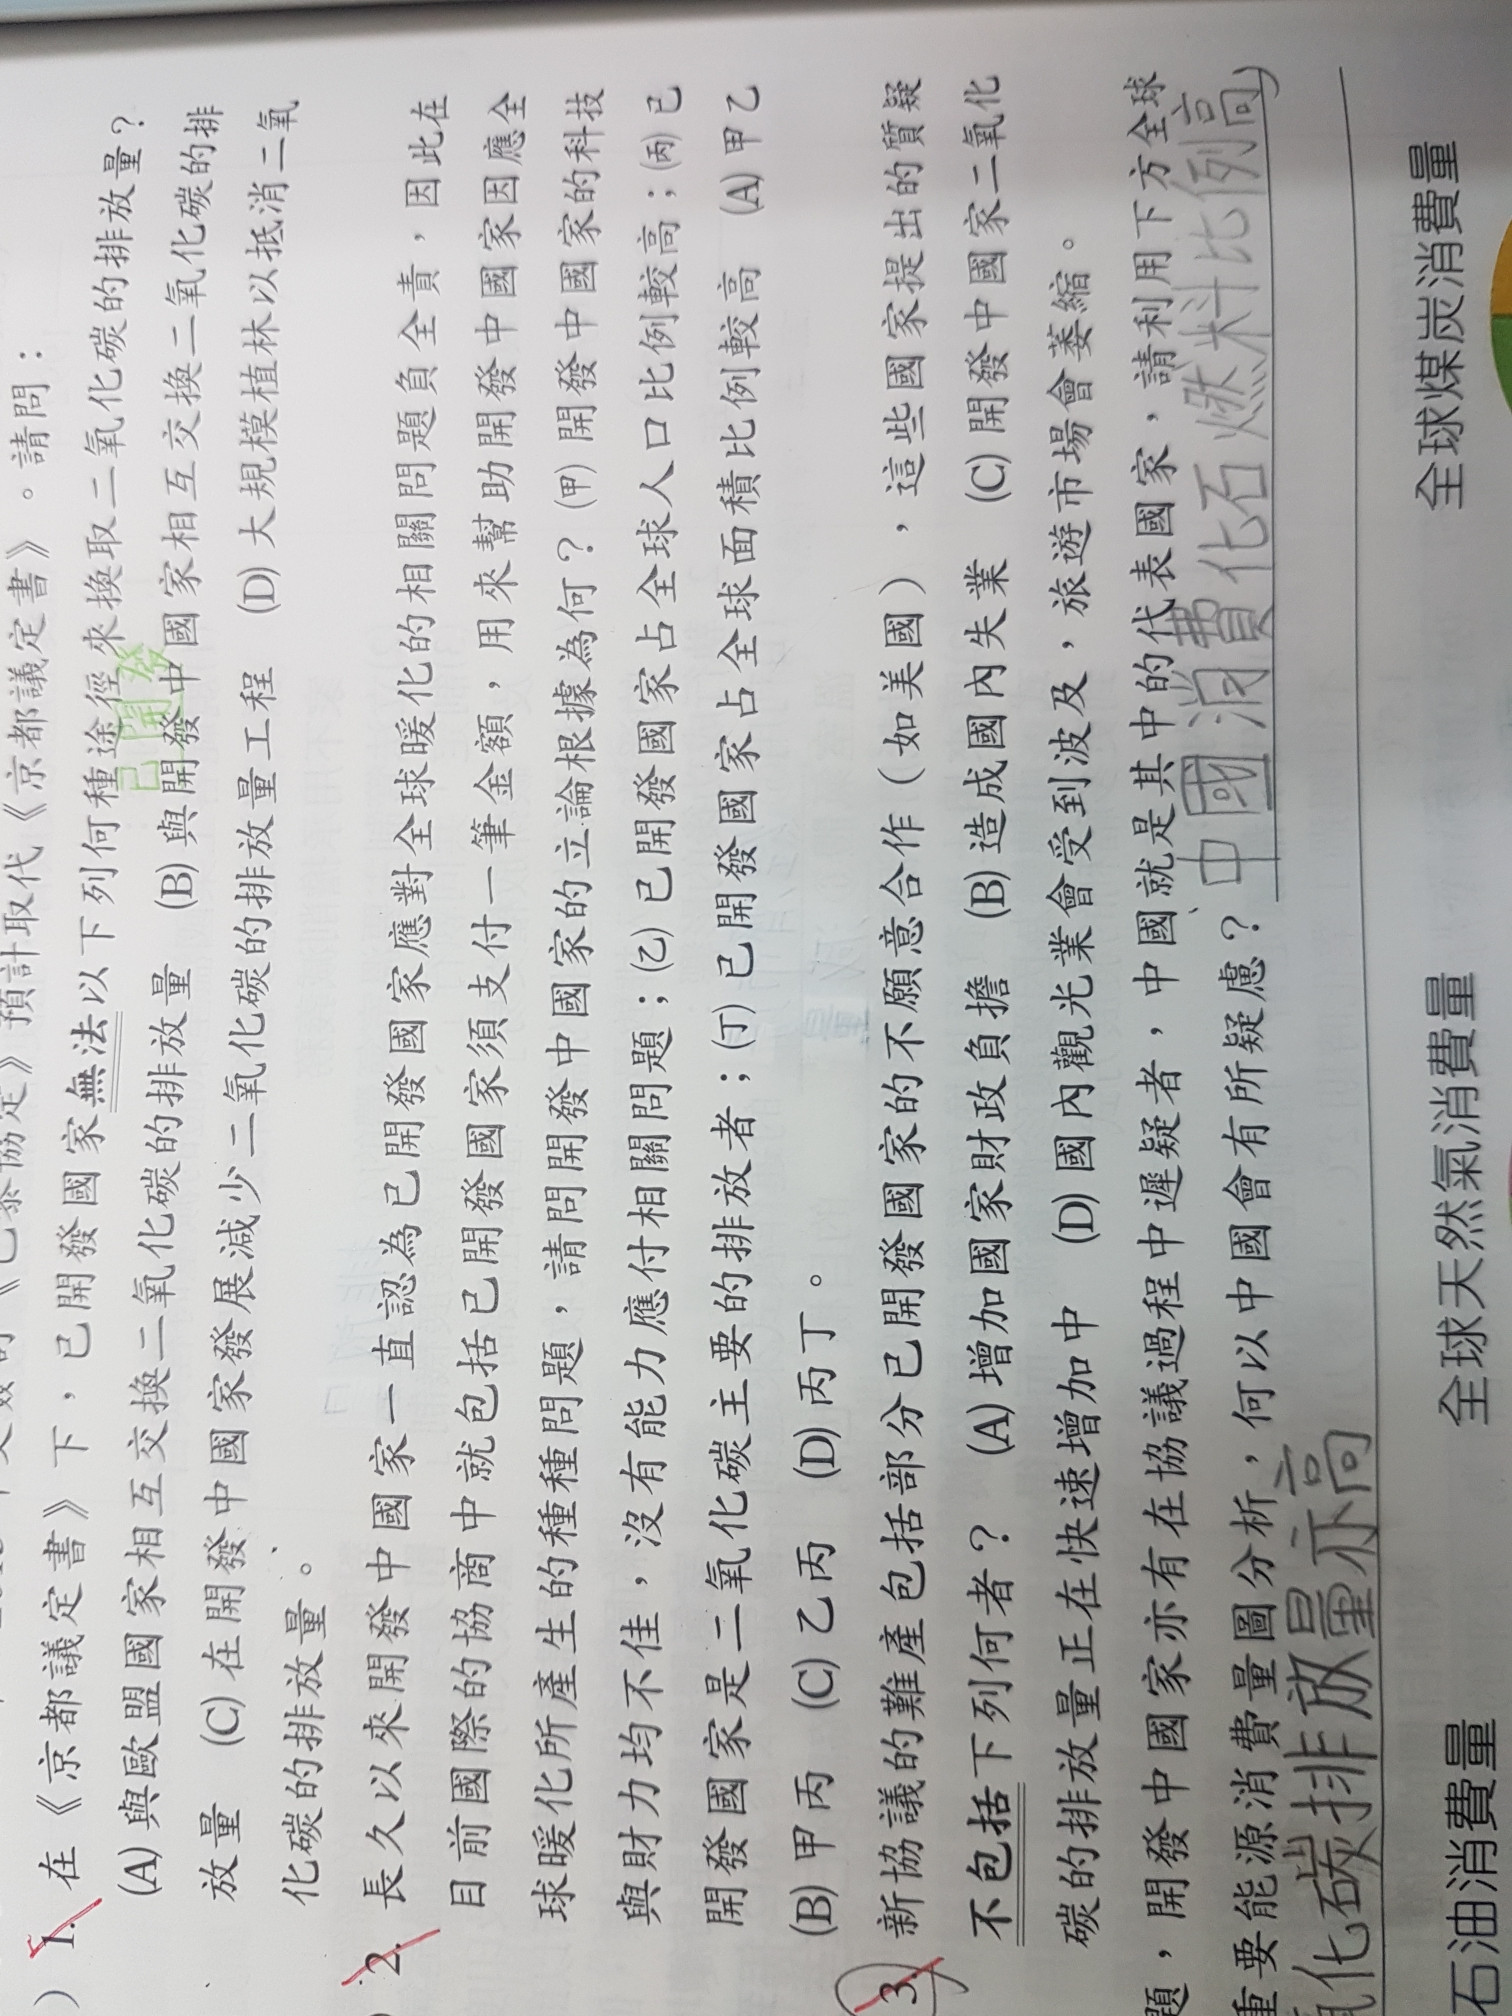 《巴黎協定》預計取代《京都議定書》。請問：
) 1. 在《京都議定書》下，已開發國家無法以下列何種途徑來換取二氧化碳的排放量？
已開發
(A)與歐盟國家相互交換二氧化碳的排放量 (B)與開發中國家相互交換二氧化碳的排
放量 (C)在開發中國家發展減少二氧化碳的排放量工程 (D)大規模植林以抵消二氧
化碳的排放量。
) 2. 長久以來開發中國家一直認為已開發國家應對全球暖化的相關問題負全責，因此在
目前國際的協商中就包括已開發國家須支付一筆金額，用來幫助開發中國家因應全
球暖化所產生的種種問題，請問開發中國家的立論根據為何？(甲)開發中國家的科技
與財力均不佳，沒有能力應付相關問題；(乙)已開發國家占全球人口比例較高；(丙)已
開發國家是二氧化碳主要的排放者；(丁)已開發國家占全球面積比例較高 (A)甲乙
(B)甲丙 (C)乙丙 (D)丙丁。
3. 新協議的難產包括部分已開發國家的不願意合作（如美國），這些國家提出的質疑
不包括下列何者？ (A)增加國家財政負擔 (B)造成國內失業 (C)開發中國家二氧化
碳的排放量正在快速增加中 (D)國內觀光業會受到波及，旅遊市場會萎縮。
題，開發中國家亦有在協議過程中遲疑者，中國就是其中的代表國家，請利用下方全球
重要能源消費量圖分析，何以中國會有所疑慮？中國消費化石燃料比例高，
氧化碳排放量亦高
石油消費量 全球天然氣消費量 全球煤炭消費量